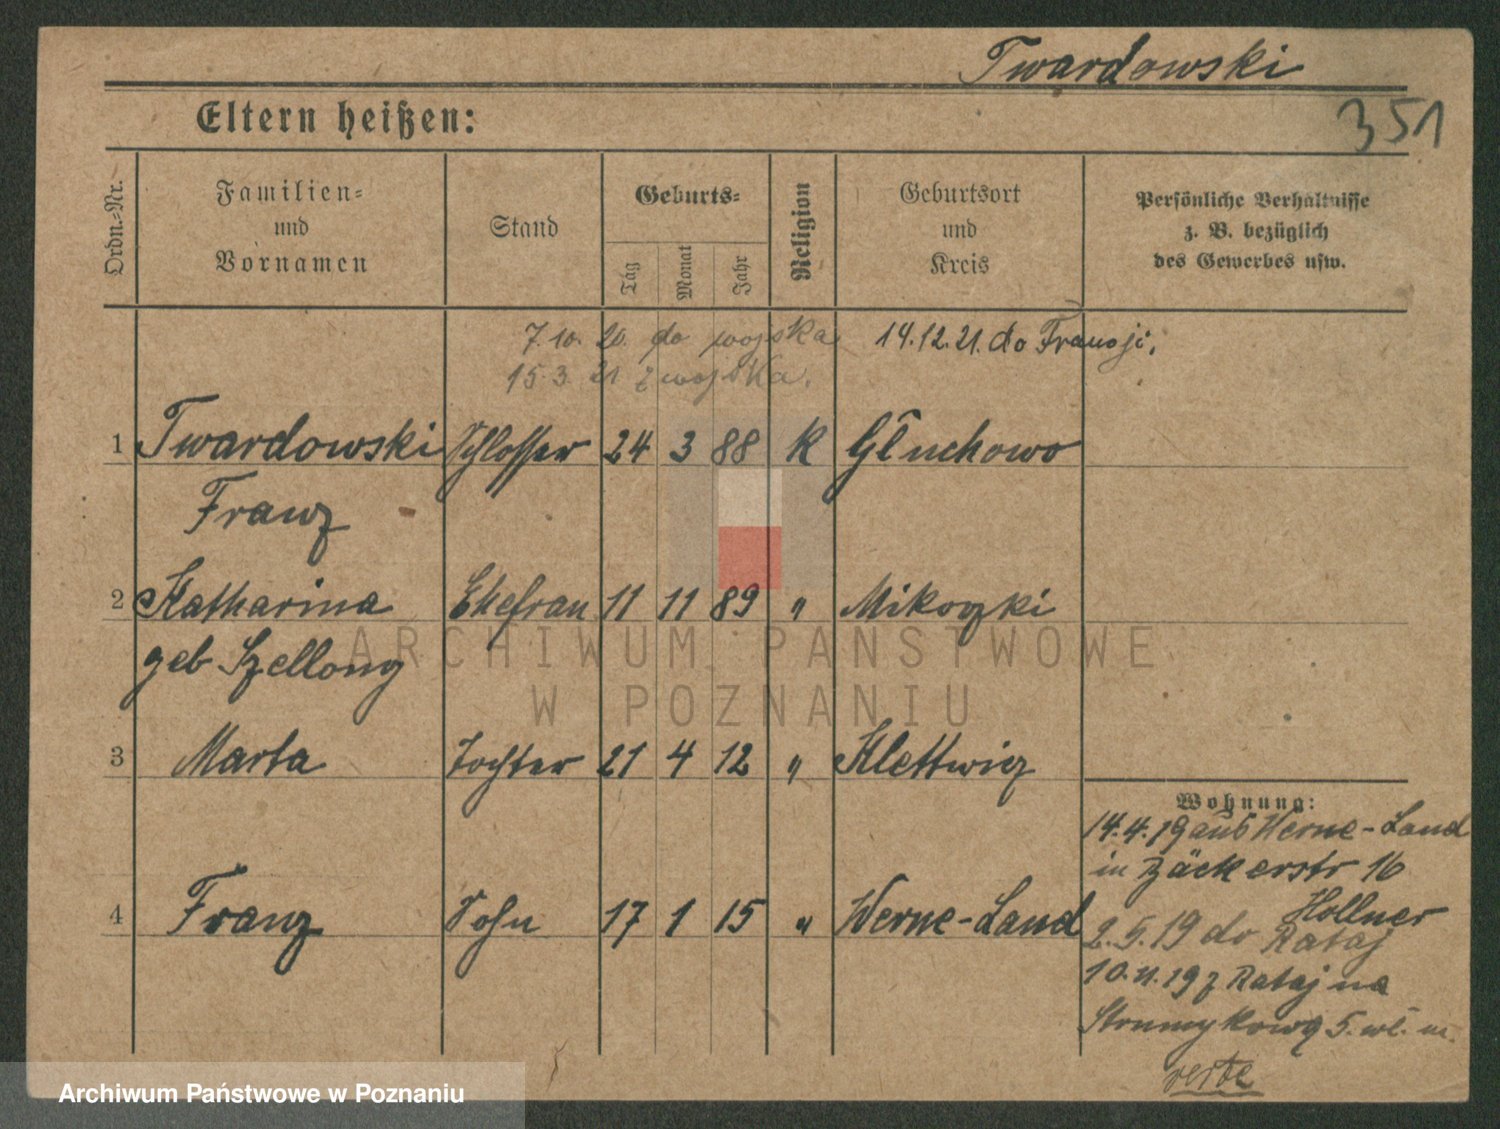 Twardowski
Eltern heißen:
351
Ordn.-Nr.
Familien- und Vornamen
Stand
Geburts-
Tag
Monat
Jahr
Religion
Geburtsort und Kreis
Persönliche Verhältnisse z. B. bezüglich des Gewerbes usw.
7.10.20. do wojska
14.12.21. do Francji.
15.3.21 z wojska.
1 Twardowski Schlosser 24 3 88 K Głuchowo
Franz
2 Katharina Ehefrau 11 11 89 " Mikoszki
geb Szellong
3 Marta Tochter 21 4 12 " Klettwiz
4 Franz Sohn 17 1 15 " Werne-Land
Wohnung:
14.4.19 aus Werne-Land
in Bäckerstr 16
Hollner
2.5.19 do Rataj
10.11.19 z Rataj na
Strumykową 5. wł. m.
verte
ARCHIWUM PAŃSTWOWE
W POZNANIU
Archiwum Państwowe w Poznaniu